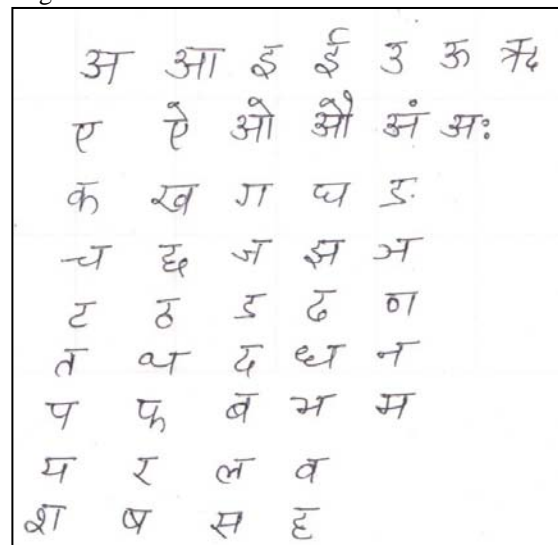 अ आ इ ई उ ऊ ऋ
ए ऐ ओ औ अं अः
क ख ग घ ङ
च छ ज झ ञ
ट ठ ड ढ ण
त थ द ध न
प फ ब भ म
य र ल व
श ष स ह